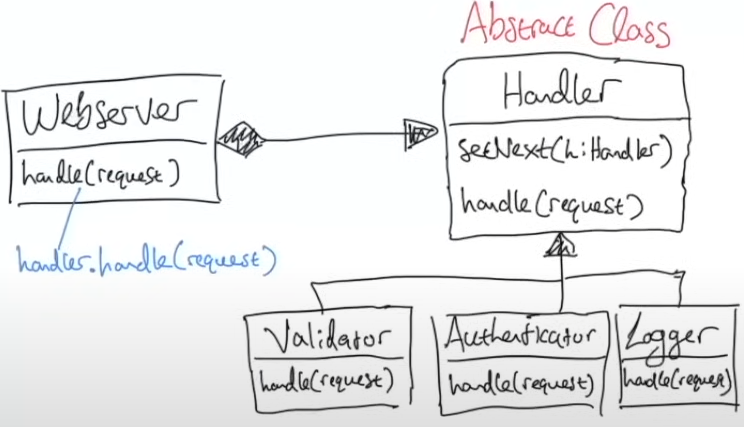 Abstract Class
Webserver
handle(request)
handler.handle(request)
Handler
setNext(h:Handler)
handle(request)
Validator
handle(request)
Authenticator
handle(request)
Logger
handle(request)